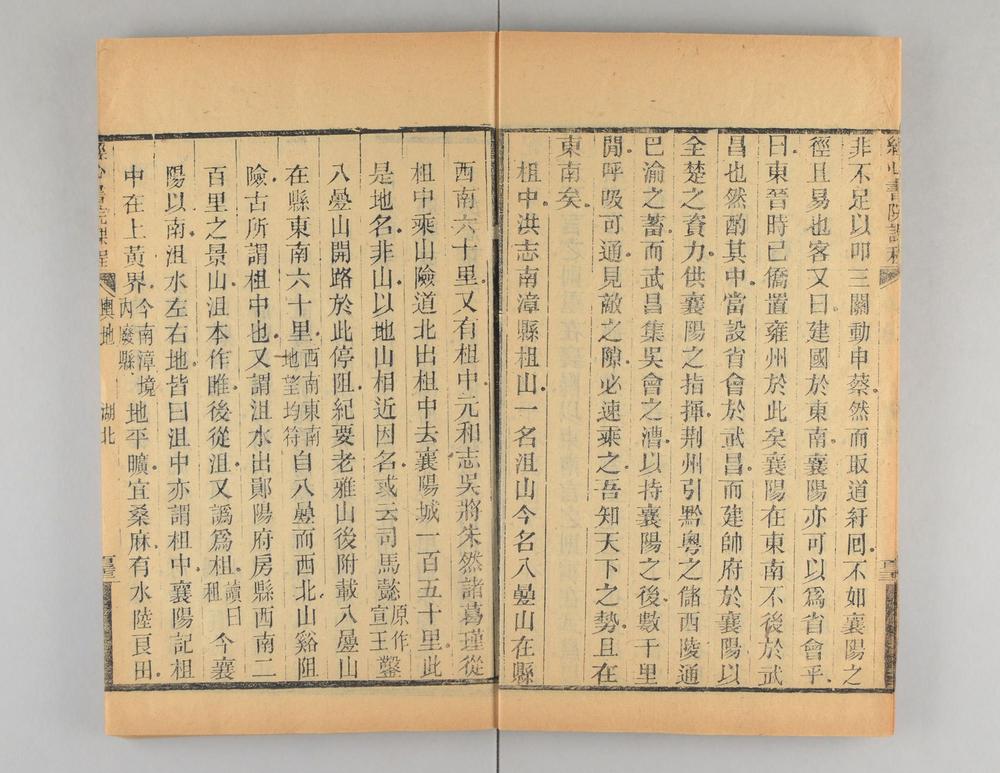 非不足以叩三關動申蔡然而取道紆囘不如襄陽之
徑且易也客又曰建國於東南襄陽亦可以爲省會乎
曰東晉時已僑置雍州於此矣襄陽在東南不後於武
昌也然酌其中當設省會於武昌而建帥府於襄陽以
全楚之資力供襄陽之指揮荆州引黔粵之儲西陵通
巴渝之蓄而武昌集吳會之漕以持襄陽之後數千里
閒呼吸可通見敵之隙必速乘之吾知天下之勢且在
東南矣
柤中洪志南漳縣柤山一名沮山今名八㬪山在縣
西南六十里又有柤中元和志吳將朱然諸葛瑾從
柤中乘山險道北出柤中去襄陽城一百五十里此
是地名非山以地山相近因名或云司馬懿原作宣王鑿
八㬪山開路於此停阻紀要老雅山後附載八㬪山
在縣東南六十里西南東南地望均符自八㬪而西北山谿阻
險古所謂柤中也又謂沮水出鄖陽府房縣西南二
百里之景山沮本作雎後從沮又譌爲柤讀曰租今襄
陽以南沮水左右地皆曰沮中亦謂柤中襄陽記柤
中在上黃界今南漳境內廢縣地平曠宜桑麻有水陸良田
經心書院課程
輿地
湖北